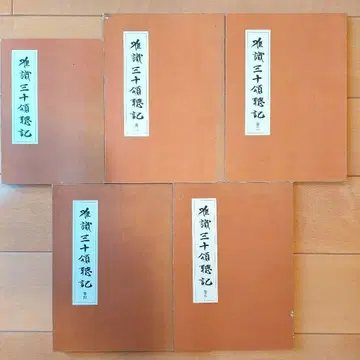 唯識三十頌聴記
唯識三十頌聴記
唯識三十頌聴記
唯識三十頌聴記
唯識三十頌聴記